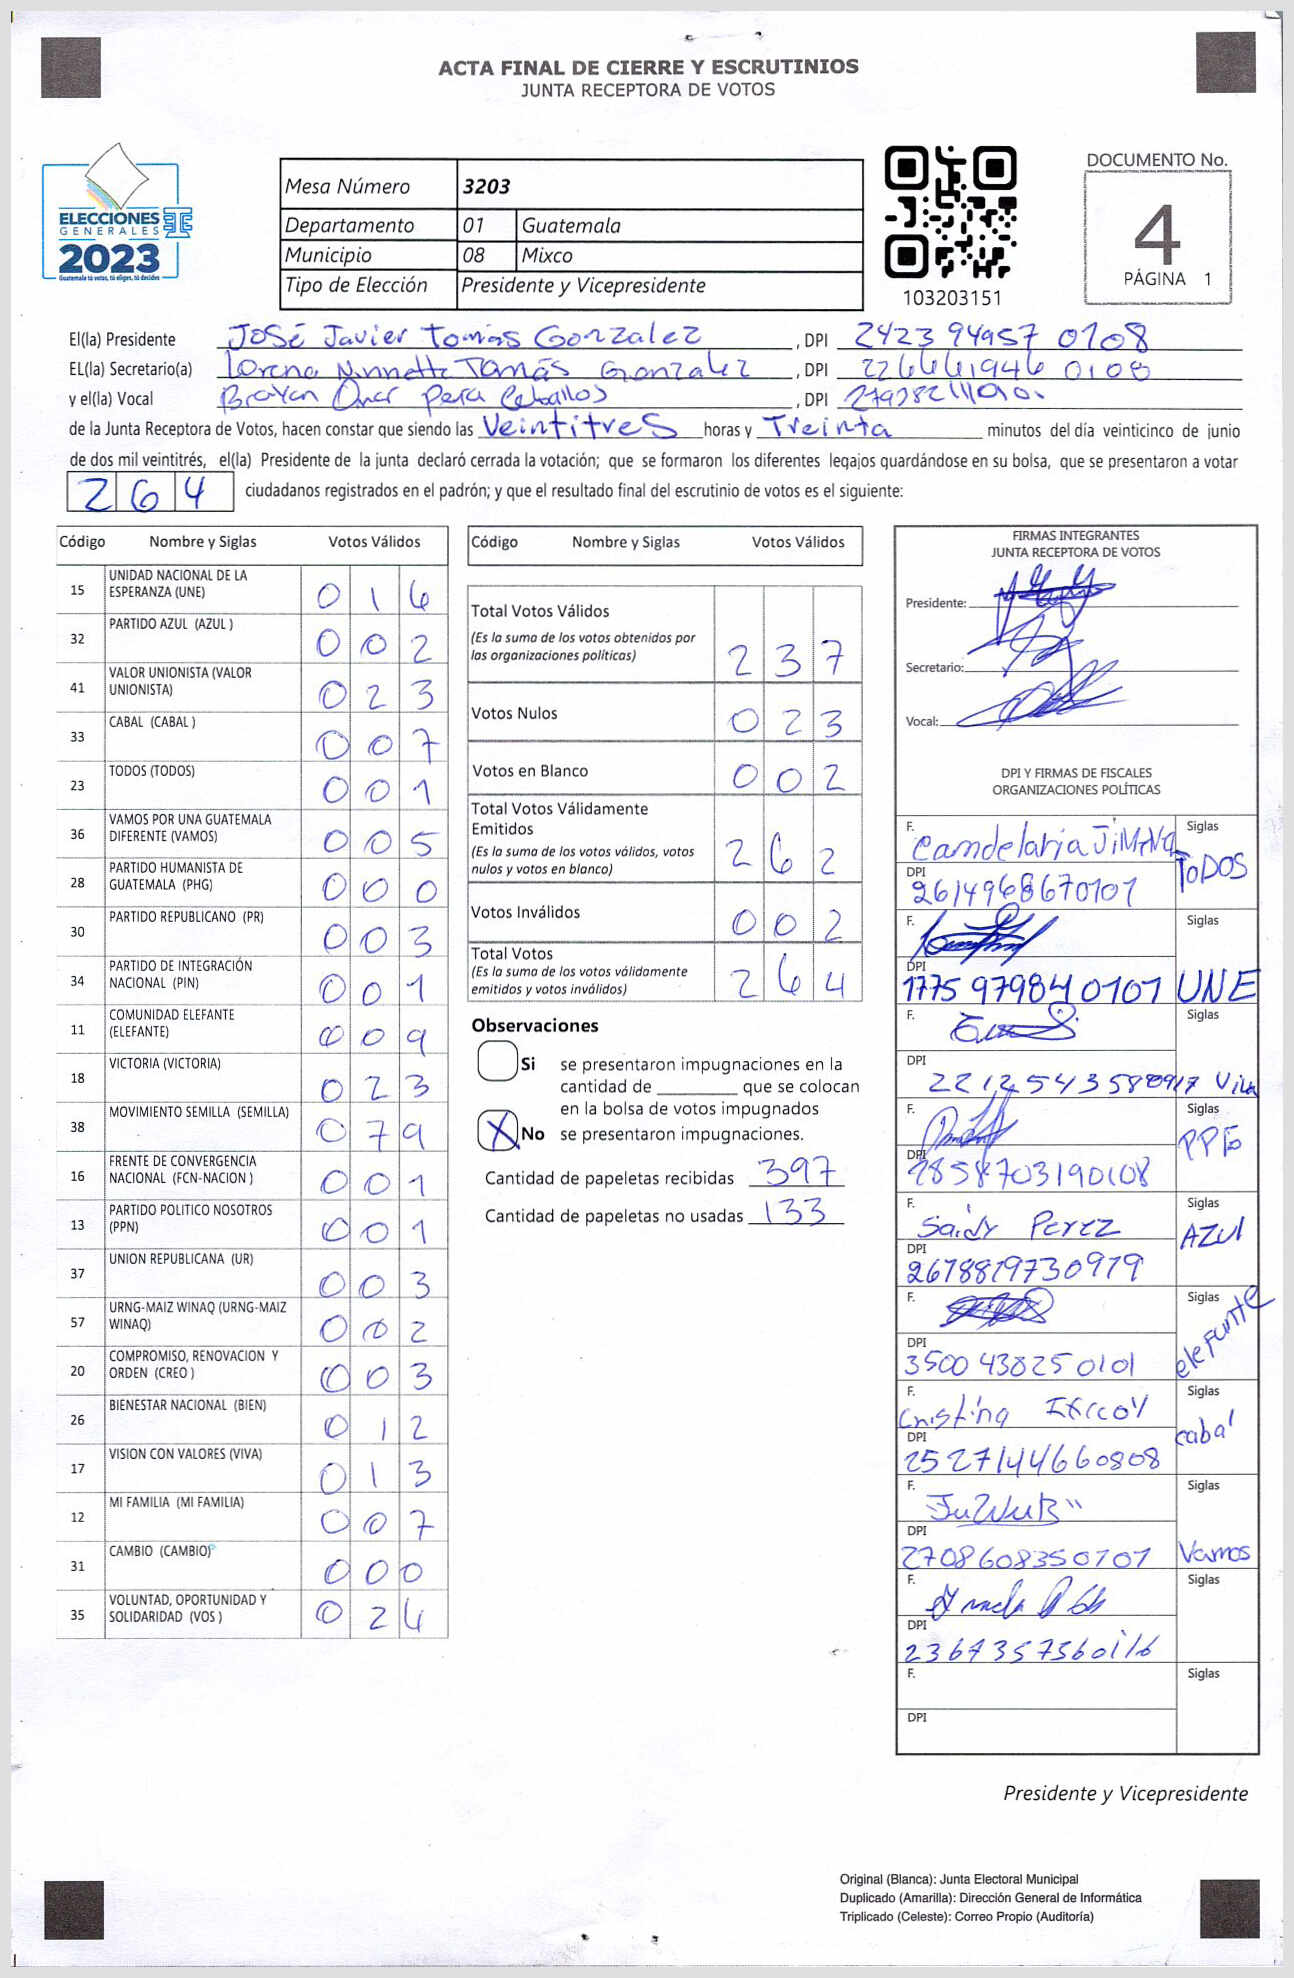 ACTA FINAL DE CIERRE Y ESCRUTINIOS
JUNTA RECEPTORA DE VOTOS
ELECCIONES
GENERALES
2023
Guatemala tú votas, tú eliges, tú decides
Mesa Número 3203
Departamento 01 Guatemala
Municipio 08 Mixco
Tipo de Elección Presidente y Vicepresidente
103203151
DOCUMENTO No.
4
PÁGINA 1
El(la) Presidente José Javier Tomás Gonzalez , DPI 2423 94957 0108
EL(la) Secretario(a) Lorena Ninnette Tomás Gonzalez , DPI 226661946 0108
y el(la) Vocal Brayan Omar Ceballos , DPI
de la Junta Receptora de Votos, hacen constar que siendo las Veintitres horas y Treinta minutos del día veinticinco de junio
de dos mil veintitrés, el(la) Presidente de la junta declaró cerrada la votación; que se formaron los diferentes legajos guardándose en su bolsa, que se presentaron a votar
264 ciudadanos registrados en el padrón; y que el resultado final del escrutinio de votos es el siguiente:
Código Nombre y Siglas Votos Válidos
15 UNIDAD NACIONAL DE LA ESPERANZA (UNE) 016
32 PARTIDO AZUL (AZUL ) 002
41 VALOR UNIONISTA (VALOR UNIONISTA) 023
33 CABAL (CABAL ) 007
23 TODOS (TODOS) 001
36 VAMOS POR UNA GUATEMALA DIFERENTE (VAMOS) 005
28 PARTIDO HUMANISTA DE GUATEMALA (PHG) 000
30 PARTIDO REPUBLICANO (PR) 003
34 PARTIDO DE INTEGRACIÓN NACIONAL (PIN) 001
11 COMUNIDAD ELEFANTE (ELEFANTE) 009
18 VICTORIA (VICTORIA) 023
38 MOVIMIENTO SEMILLA (SEMILLA) 079
16 FRENTE DE CONVERGENCIA NACIONAL (FCN-NACION ) 001
13 PARTIDO POLITICO NOSOTROS (PPN) 001
37 UNION REPUBLICANA (UR) 003
57 URNG-MAIZ WINAQ (URNG-MAIZ WINAQ) 002
20 COMPROMISO, RENOVACION Y ORDEN (CREO ) 003
26 BIENESTAR NACIONAL (BIEN) 012
17 VISION CON VALORES (VIVA) 013
12 MI FAMILIA (MI FAMILIA) 007
31 CAMBIO (CAMBIO) 000
35 VOLUNTAD, OPORTUNIDAD Y SOLIDARIDAD (VOS ) 024
Código Nombre y Siglas Votos Válidos
Total Votos Válidos 237
(Es la suma de los votos obtenidos por
las organizaciones políticas)
Votos Nulos 023
Votos en Blanco 002
Total Votos Válidamente
Emitidos 262
(Es la suma de los votos válidos, votos
nulos y votos en blanco)
Votos Inválidos 002
Total Votos 264
(Es la suma de los votos válidamente
emitidos y votos inválidos)
Observaciones
Si se presentaron impugnaciones en la
cantidad de ________ que se colocan
en la bolsa de votos impugnados
X No se presentaron impugnaciones.
Cantidad de papeletas recibidas 397
Cantidad de papeletas no usadas 133
FIRMAS INTEGRANTES
JUNTA RECEPTORA DE VOTOS
Presidente:
Secretario:
Vocal:
DPI Y FIRMAS DE FISCALES
ORGANIZACIONES POLÍTICAS
F. Candelaria Siglas
DPI 2614968670101 TODOS
F. Siglas
DPI 1775 97984 0101 UNE
F. Siglas
DPI
F. Siglas
DPI 2858703190108
F. Saidy Perez Siglas
DPI 2678819730919 AZUL
F. Siglas
DPI 3500 43825 0101 elefante
F. Cristina Siglas
DPI 2527144660808 cabal
F. Siglas
DPI 2708608350101 Vamos
F. Siglas
DPI
F. Siglas
DPI
Presidente y Vicepresidente
Original (Blanca): Junta Electoral Municipal
Duplicado (Amarilla): Dirección General de Informática
Triplicado (Celeste): Correo Propio (Auditoría)